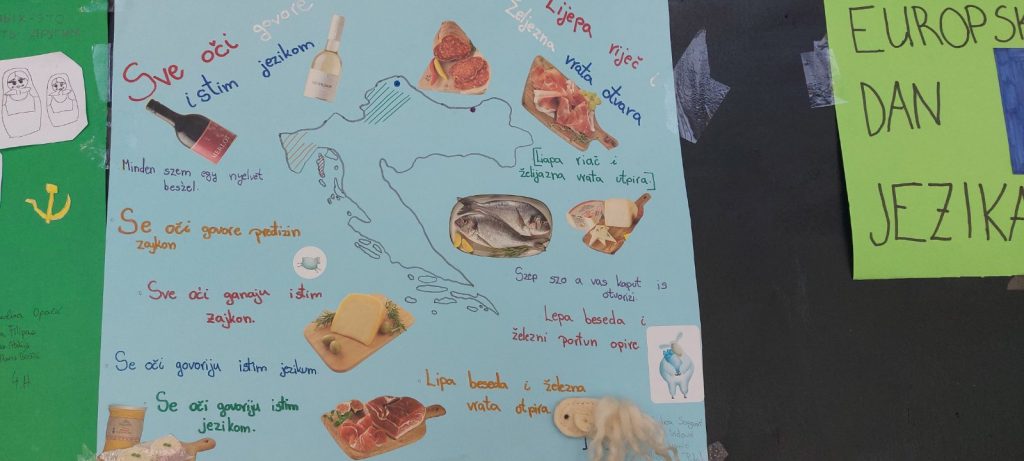 Sve oči govore
istim jezikom
Minden szem egy nyelvet
beszél.
Se oči govore pređizin
zajkon
Sve oči ganaju istim
zajkon.
Se oči govoriju istim jezikum
Se oči govoriju istim
jezikom.
Lijepa riječ i
željezna vrata
otvara
[Liapa riač i
želijazna vrata utpira]
Szep szo a vas kaput is
otvorizi.
Lepa beseda i
železni portun opire.
Lipa beseda i železna
vrata otpira
MERLOT
EUROPSK
DAN
JEZIKA
4.H